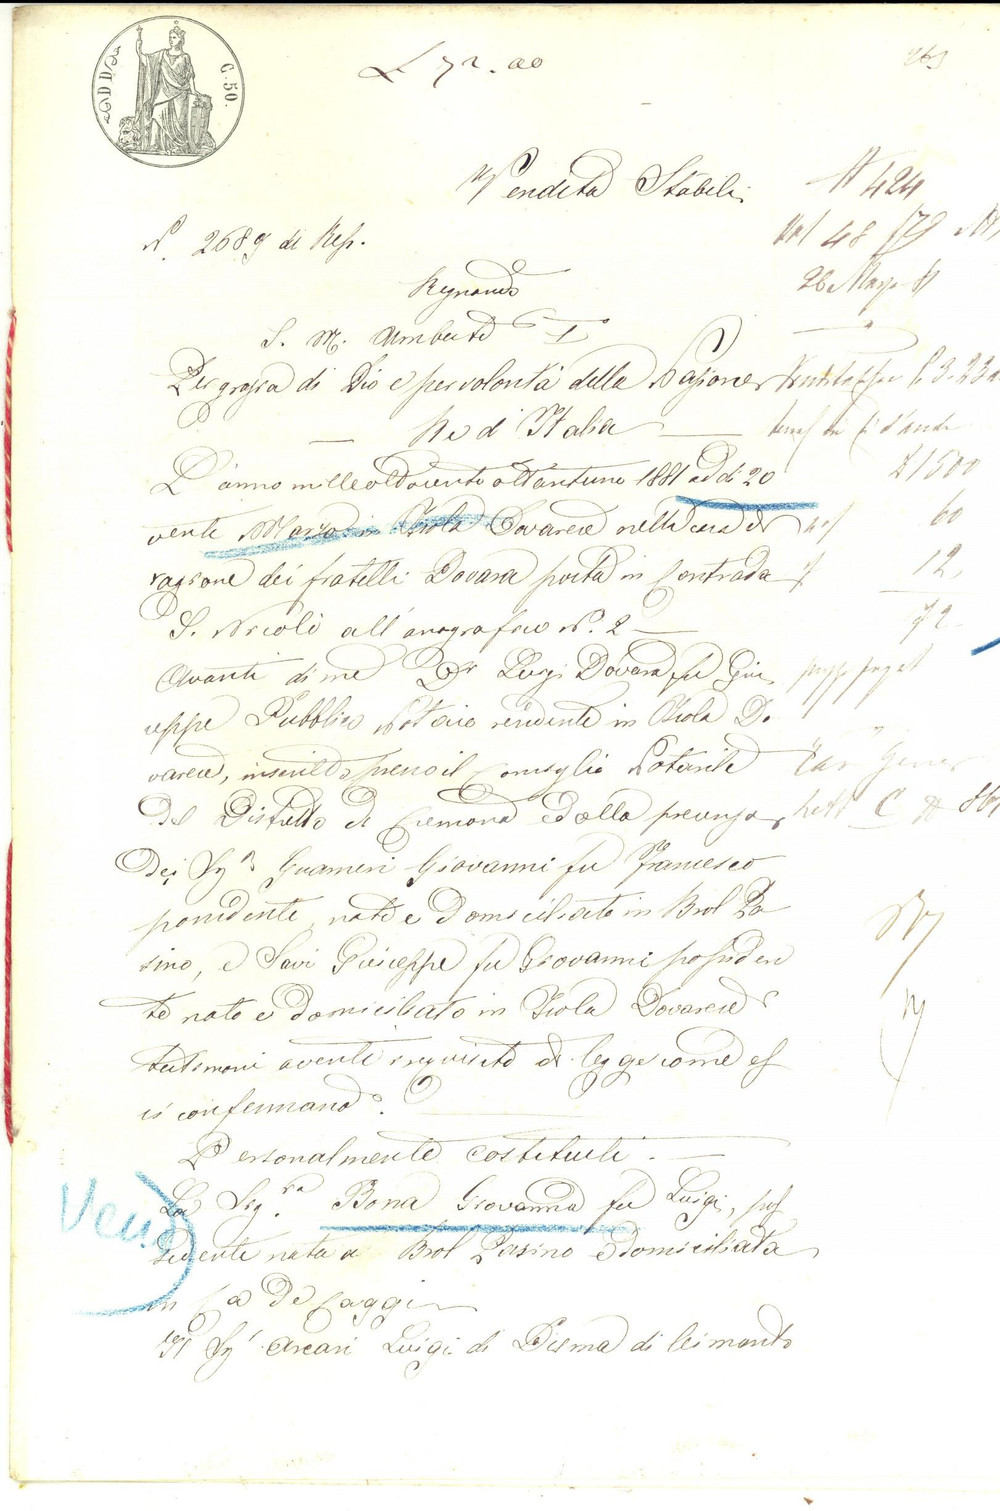 C. 50.
L 72.00
263
Vendita Stabili
N 424
N. 2689 di Rep.
Vol 48 f 79
26 Marzo 81
Regnando
S. M. Umberto I
Per grazia di Dio e per volontà della Nazione
Re d'Italia
L'anno milleottocento ottantuno 1881 ad di 20
£ 1500
venti Marzo in Isola Dovarese nella casa di
60
ragione dei fratelli Dovara posta in Contrada
12.
S. Nicolò all'anagrafico N. 2
72
Avanti di me Dr Luigi Dovara fu Giu
seppe Pubblico Notaio residente in Isola Do
varese, inscritto presso il Consiglio Notarile
Del Distretto di Cremona e dalla presenza
Dei Sigi Guarneri Giovanni fu Francesco
possidente, nato e domiciliato in Brol Pa
sino, e Savi Giuseppe fu Giovanni possiden
te nato e domiciliato in Isola Dovarese
testimoni aventi i requisiti di legge come es
si confermano.
Personalmente costituiti.
La Sigra Bona Giovanna fu Luigi, pos
Vend
sidente nata a Brol Pasino e domiciliata
in Ca De Caggi
Il Sigr Arcari Luigi di